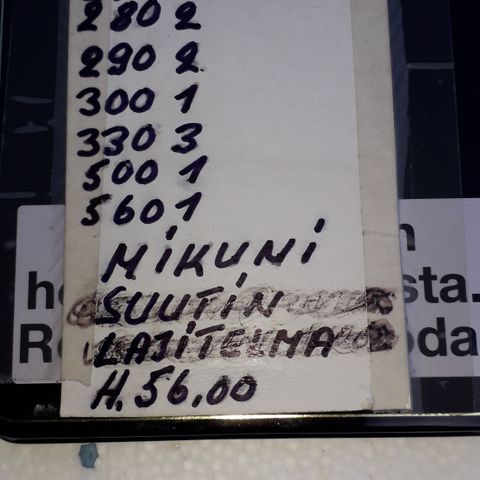 280 2
290 2
300 1
330 3
500 1
560 1
MIKUNI
SUUTIN
LAJITELMA
H. 56.00
n
h sta.
R oda